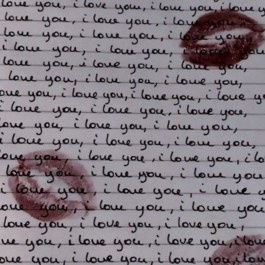 love you, i love you, i love you, i love you,
love you, i love you, i love
ove you, i love you, i love you,
love you, i love you, i love you
i love you, i love you, i love
love you, i love you, i love you,
you, i love you, i love you, i love y
i love you, i love you, i love you,
ove you, i love you, i love you,
love you, i love you, i love you,
i love you, i love you, i love you,
love you, i love you, i love you, i love
love you, i love you, i love you,
love you, i love you, i love
love you, i love you, i love you,
ove you, i love you, i love you,
ve you, i love you, i love you, i love
love you, i love you, i love you